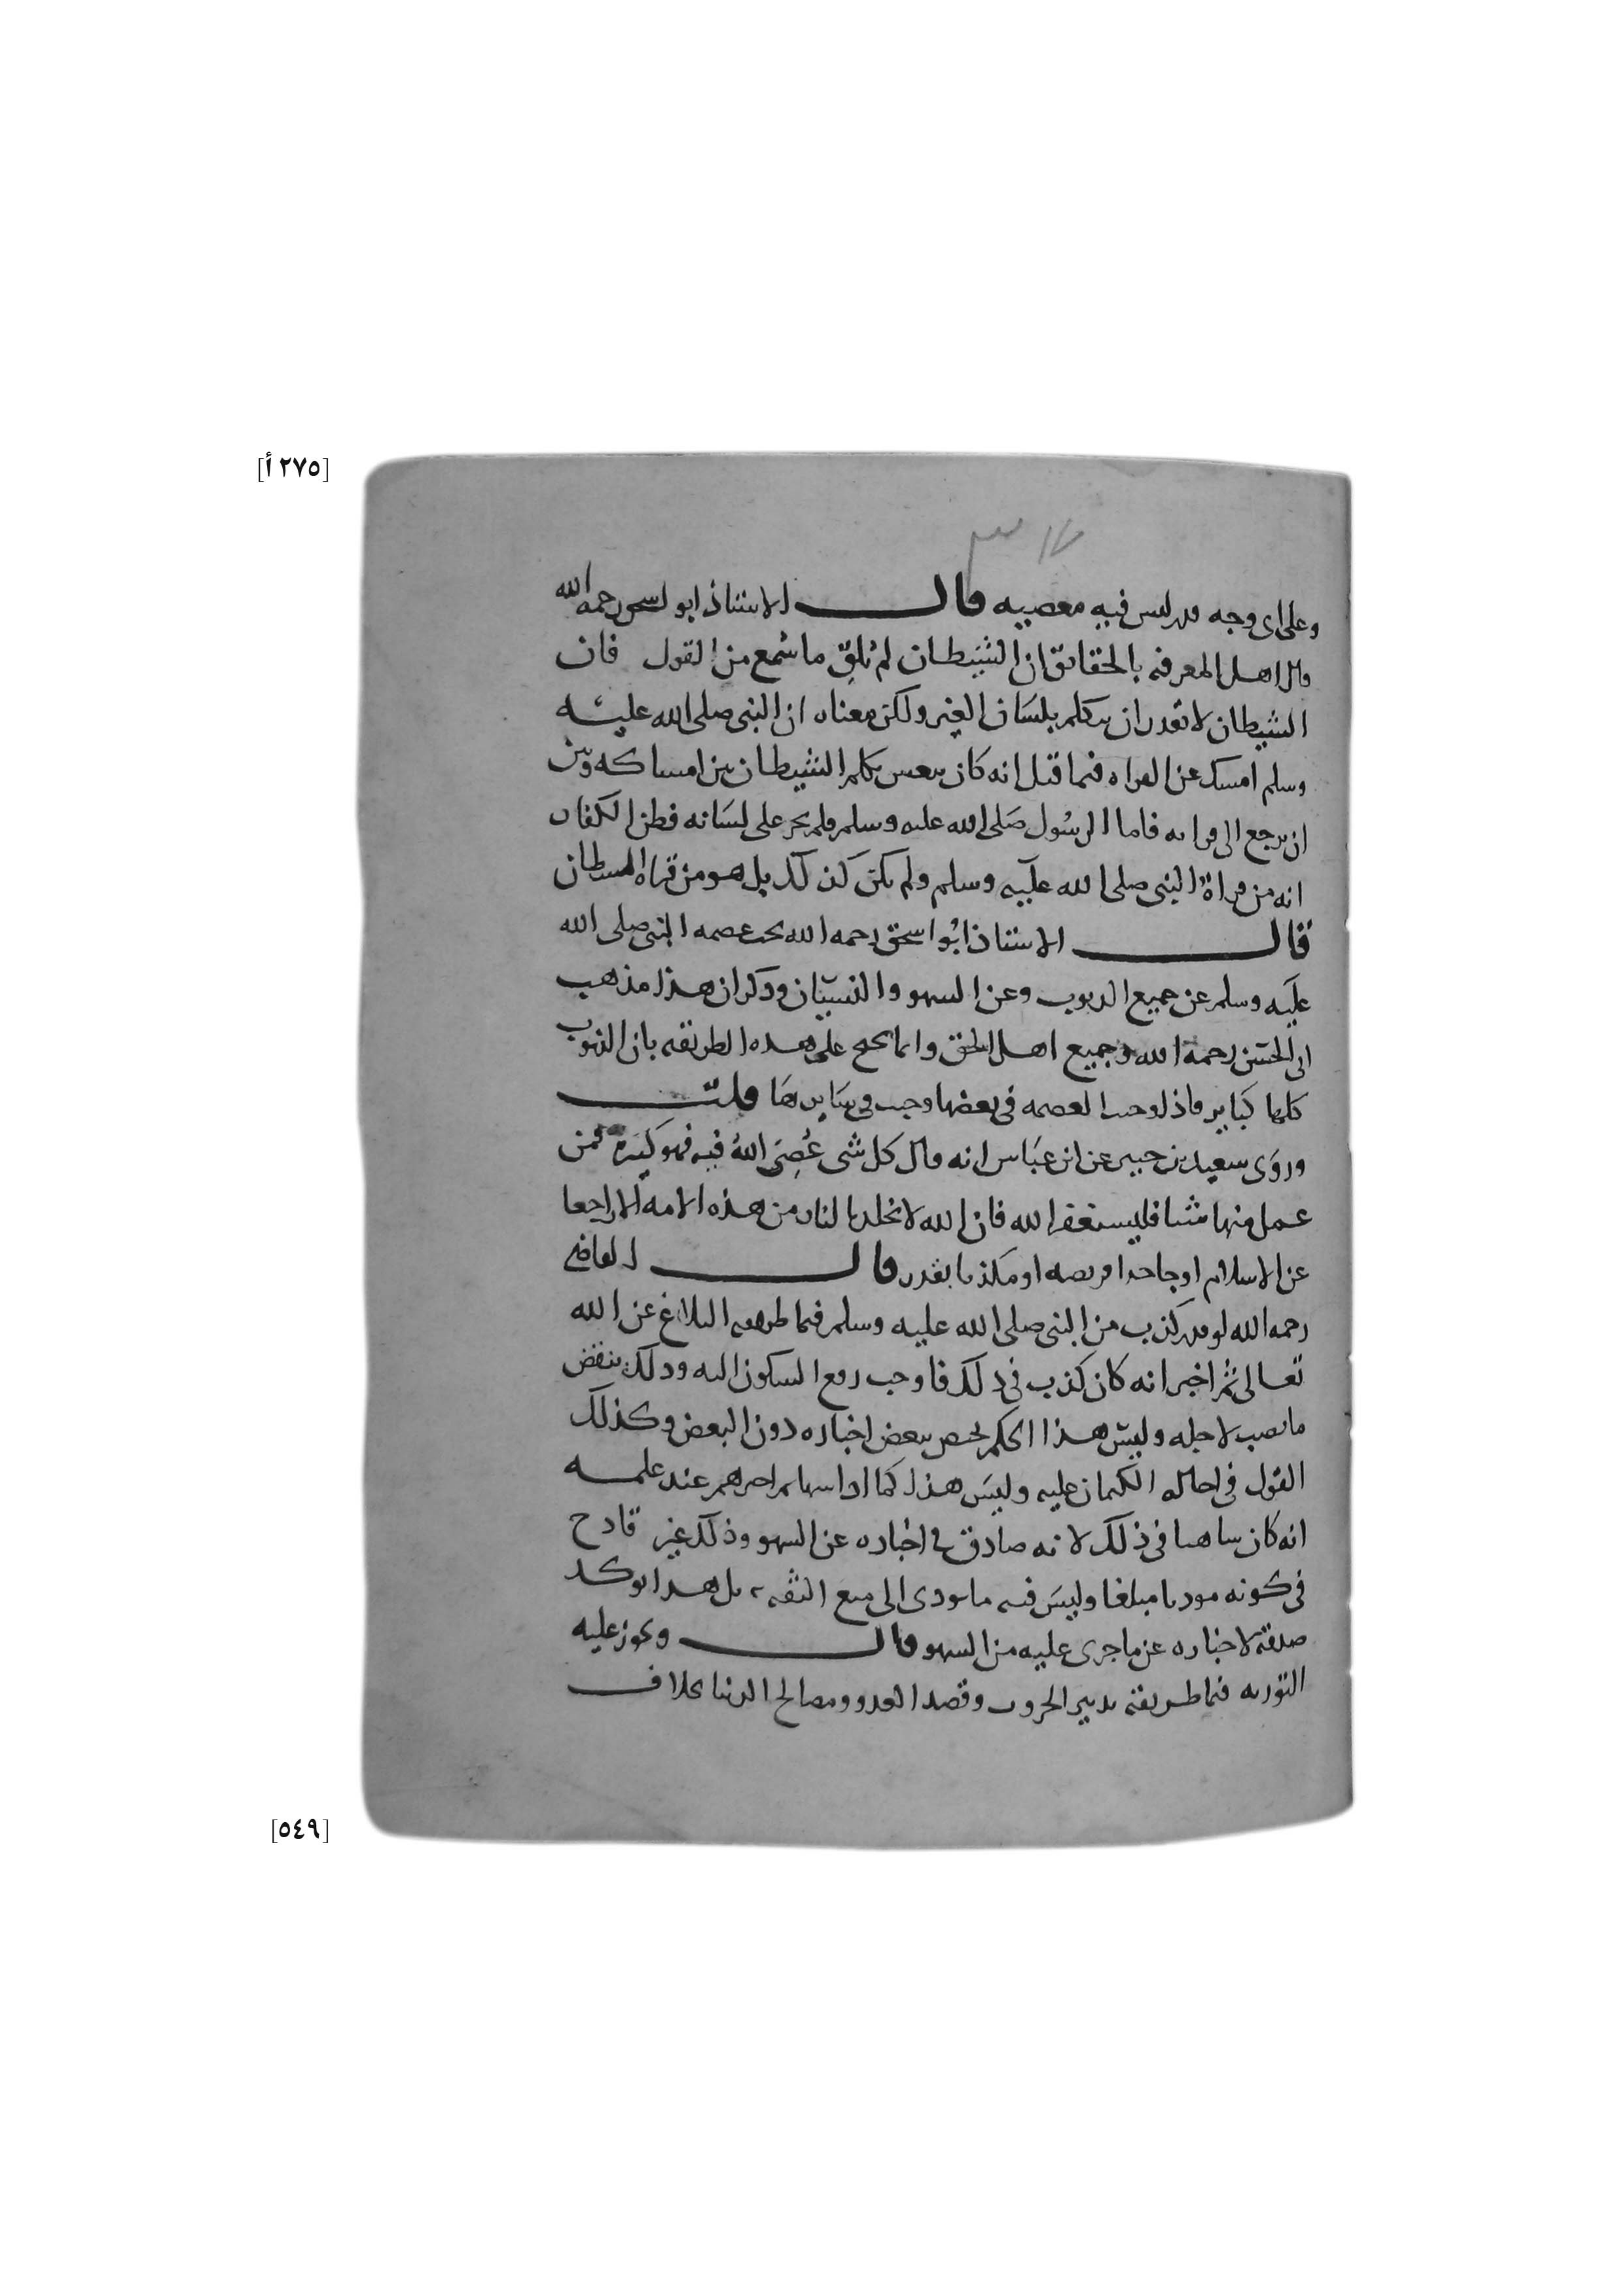 [٢٧٥ أ]
وعلى اى وجه قدر ليس فيه معصيه قال الاستاذ ابو اسحق رحمه الله
قال اهل المعرفه بالحقائق ان الشيطان لم يُلقِ ما سُمع من القول فان
الشيطان لا يقدر ان يتكلم بلسَان الغير ولكن معناه ان النبى صلى الله عليه
وسلم امسك عن القراه فيما قبل انه كان ينعس فتكلم الشيطان بين امساكه وبين
ان يرجع الى قراته فاما الرسُول صَلى الله عليه وسلم فلم يجر على لسَانه فظن الكفار
انه من قراة النبى صلى الله عليه وسلم ولم يكن كذلك بل هو من قراة الشيطان
قال الاستاذ ابُو اسحق رحمه الله يجب عصمه النبى صلى الله
عليه وسلم عن جميع الذنوب وعن السهو والنسيان وذكر ان هذا مذهب
ابى الحسَن رحمه الله وجميع اهل الحق وانما يصح على هذه الطريقه بان الذنوب
كلها كباير فاذا وجبت العصمه فى بعضها وجب فى سَايرهَا قلت
وروَى سعيد بن جبير عن ابن عبَاس انه قال كل شى عُصِىَ اللهُ فيه فهو كبيَرة فمن
عمل منها شيا فليستغفر الله فان الله لا يخلد النار من هذه الامه الا راجعا
عن الاسلام او جاحدا فريضه او مكذبا بقدر قال القاضى
رحمه الله لو قدر كذب من النبى صلى الله عليه وسلم فيما طريقه البلاغ عن الله
تعالى ثم اخبر انه كان كذب فى ذلك فاوجب رفع السكون اليه وذلك ينقض
ما نصب لاجله وليسَ هذا الحكم يختص ببعض اخباره دون البعض وكذلك
القول فى احاله الكتمان عليه وليسَ هذا كما اذا سها ثم اخبرهم عند علمه
انه كان ساهيا فى ذلك لانه صادق فى اخباره عن السهو وذلك غير قادح
فى كونه موديا مبلغا وليسَ فيه ما يودى الى منع الثقه بل هذا يوكد
صدقه لاخباره عن ما جرى عليه من السهو قال ويجوز عليه
التوريه فيما طريقته تدبير الحروب وقصد العدو ومصالح الدنيا بخلاف
[٥٤٩]